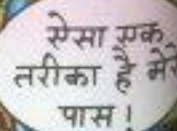 ऐसा एक
तरीका है मेरे
पास।